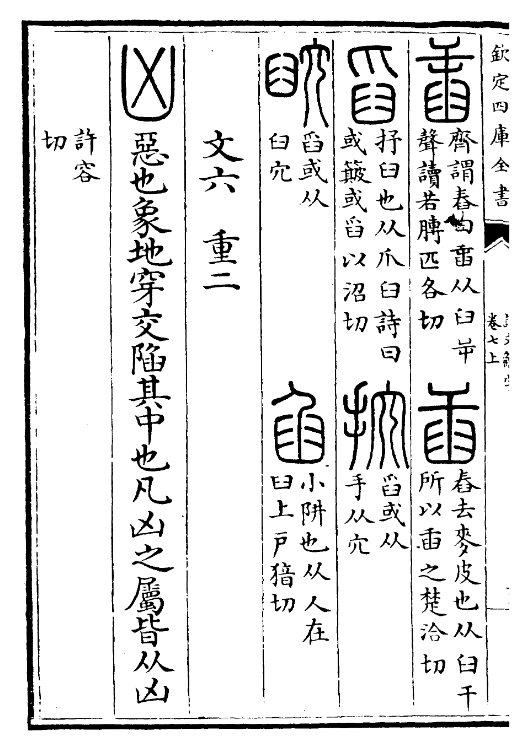 欽定四庫全書
卷七上
齊謂舂曰𦥛从臼屰
聲讀若膊匹各切
舂去麥皮也从臼干
所以臿之楚洽切
抒臼也从爪臼詩曰
或簸或舀以沼切
舀或从
手从宂
舀或从
臼宂
小阱也从人在
臼上戶猪切
文六 重二
凶
惡也象地穿交陷其中也凡凶之屬皆从凶
許容
切